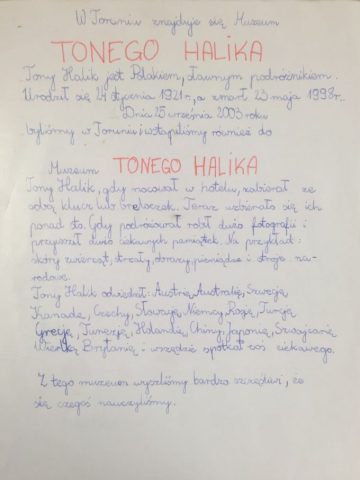 W Toruniu znajduje się Muzeum
TONEGO HALIKA
Tony Halik jest Polakiem, sławnym podróżnikiem.
Urodził się 24 stycznia 1921 r., a zmarł 23 maja 1998 r.
Dnia 25 września 2003 roku
byliśmy w Toruniu i wstąpiliśmy również do
Muzeum TONEGO HALIKA
Tony Halik, gdy nocował w hotelu, zabierał ze
sobą klucz lub breloczek. Teraz uzbierało się ich
ponad sto. Gdy podróżował robił dużo fotografii i
przywoził dużo ciekawych pamiątek. Na przykład:
skóry zwierząt, strzały, obrazy, pieniądze i stroje na-
rodowe.
Tony Halik odwiedził: Austrię, Australię, Szwecję,
Kanadę, Czechy, Słowację, Niemcy, Rosję, Turcję,
Grecję, Tunezję, Holandię, Chiny, Japonię, Szwajcarię
Wielką Brytanię i wszędzie spotkał coś ciekawego.
Z tego muzeum wyszliśmy bardzo szczęśliwi, że
się czegoś nauczyliśmy.